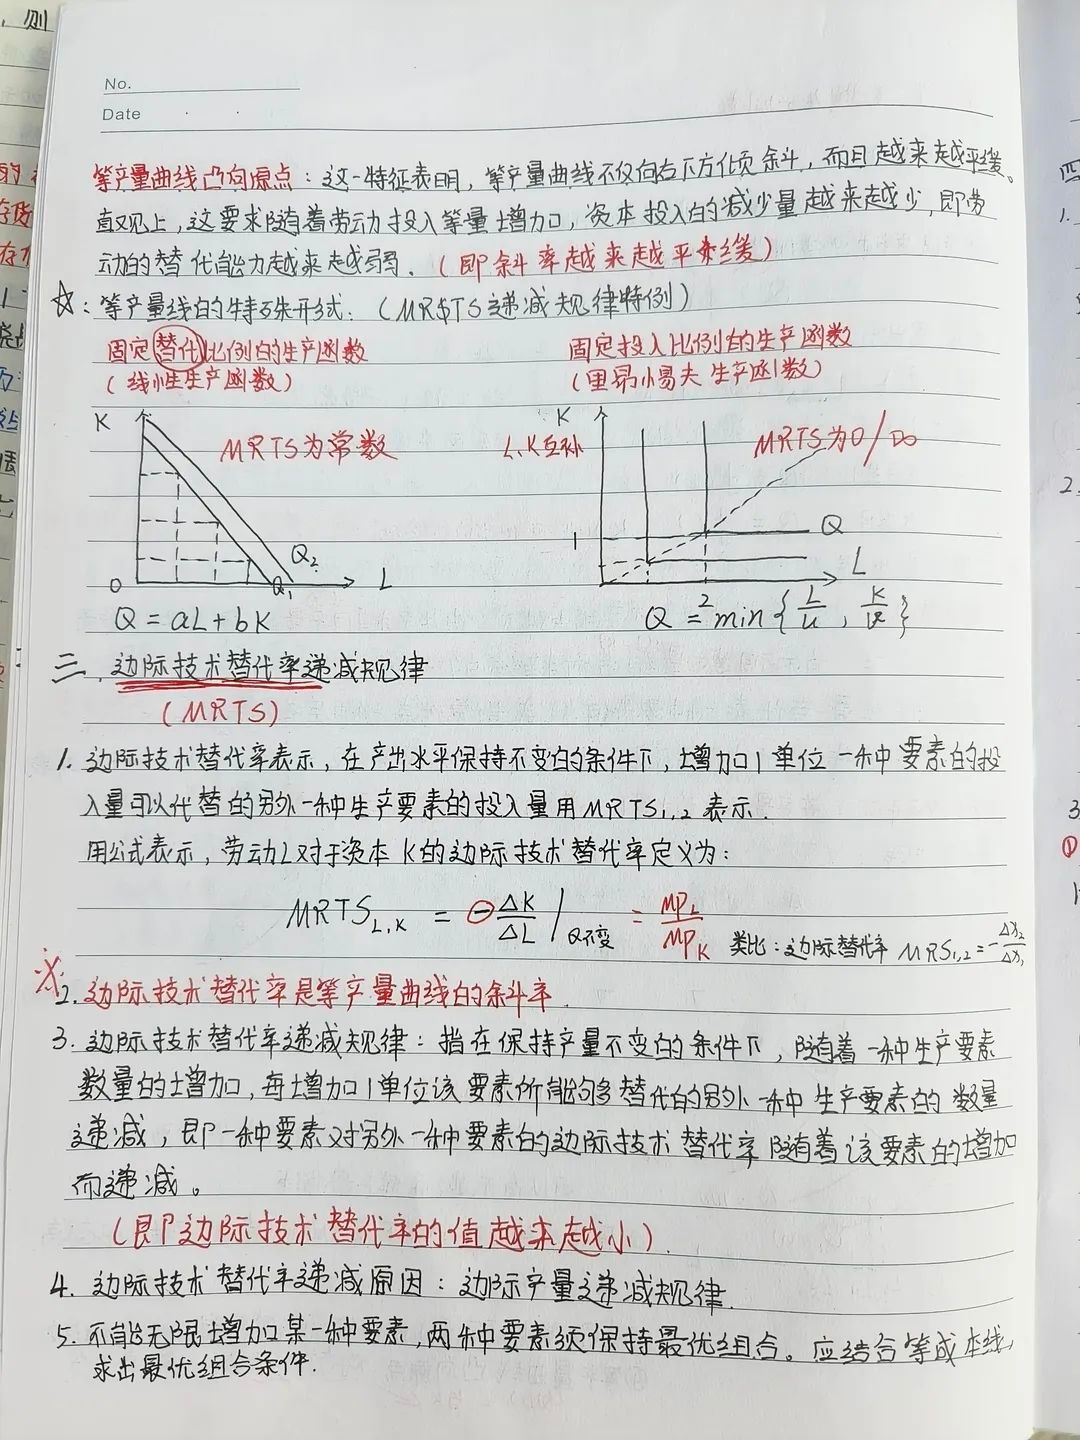 No.
Date
等产量曲线凸向原点：这一特征表明，等产量曲线不仅向右下方倾斜，而且越来越平缓。
直观上，这要求随着劳动投入等量增加，资本投入的减少量越来越少，即劳
动的替代能力越来越弱.（即斜率越来越平缓）
☆：等产量线的特殊形式:（MRTS递减规律特例）
固定替代比例的生产函数
（线性生产函数）
固定投入比例的生产函数
（里昂惕夫生产函数）
K
MRTS为常数
Q₂
Q₁
O
L
Q = aL+bK
K
L、K互补
MRTS为0/∞
1
Q
L
2
Q = min{L/u, K/v}
三、边际技术替代率递减规律
(MRTS)
1. 边际技术替代率表示，在产出水平保持不变的条件下，增加1单位一种要素的投
入量可以代替的另外一种生产要素的投入量用MRTS₁,₂表示.
用公式表示，劳动L对于资本K的边际技术替代率定义为：
MRTS_L,K = -ΔK/ΔL |Q不变 = MP_L/MP_K 类比：边际替代率 MRS₁,₂ = -Δx₂/Δx₁
※2. 边际技术替代率是等产量曲线的斜率.
3. 边际技术替代率递减规律：指在保持产量不变的条件下，随着一种生产要素
数量的增加，每增加1单位该要素所能够替代的另外一种生产要素的数量
递减，即一种要素对另外一种要素的边际技术替代率随着该要素的增加
而递减。
（即边际技术替代率的值越来越小）.
4. 边际技术替代率递减原因：边际产量递减规律.
5. 不能无限增加某一种要素，两种要素须保持最优组合。应结合等成本线，
求出最优组合条件.